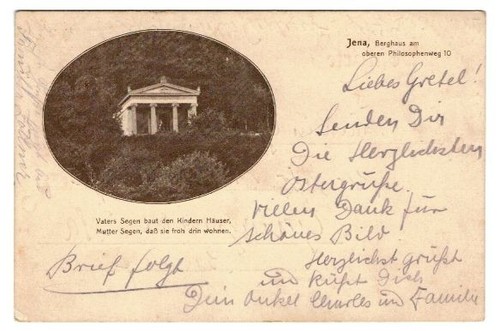 Jena, Berghaus am
oberen Philosophenweg 10
Vaters Segen baut den Kindern Häuser,
Mutter Segen, daß sie froh drin wohnen.
Liebes Gretel!
Senden Dir
Die Herzlichsten
Ostergrüße.
Vielen Dank für
schönes Bild
Herzlichst grüßt
und küßt Dich
Dein Onkel Charles und Familie
Brief folgt